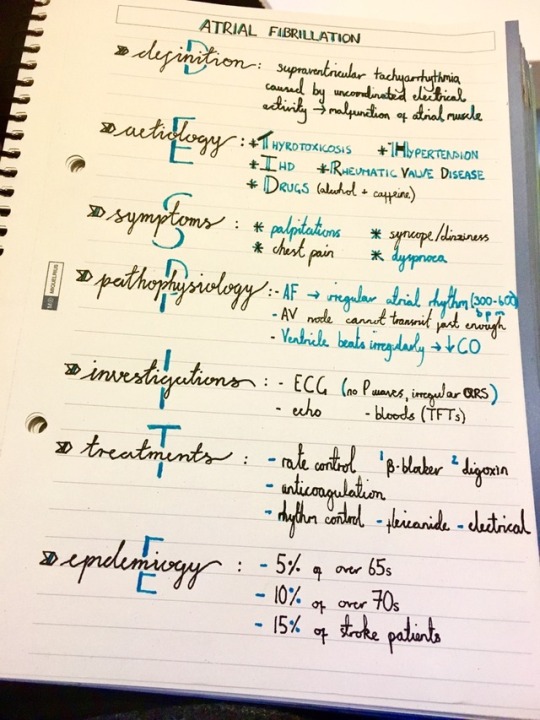 ATRIAL FIBRILLATION
» definition : supraventricular tachyarrhythmia
D
caused by uncoordinated electrical
activity → malfunction of atrial muscle
» aetiology : * THYROTOXICOSIS * HYPERTENSION
E
* IHD * RHEUMATIC VALVE DISEASE
* DRUGS (alcohol + caffeine)
» symptoms : * palpitations * syncope/dizziness
S
* chest pain * dyspnoea
» pathophysiology : - AF → irregular atrial rhythm (300-600)
P
bpm
- AV node cannot transmit fast enough
- Ventricle beats irregularly → ↓ CO
MIQUELRIUS
» investigations : - ECG (no P waves, irregular QRS)
I
- echo - bloods (TFTs)
» treatments : - rate control 1 β-blocker 2 digoxin
T
- anticoagulation
- rhythm control - fleicanide - electrical
» epidemiogy : - 5% of over 65s
E
- 10% of over 70s
- 15% of stroke patients